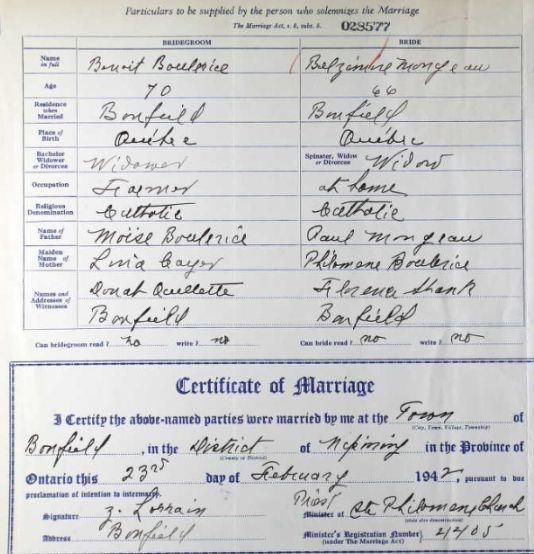 Particulars to be supplied by the person who solemnizes the Marriage
The Marriage Act, s. 8, subs. 3. 028577
BRIDEGROOM BRIDE
Name in full Benoit Boulerice Belzimire Mongeau
Age 70 66
Residence when Married Bonfield Bonfield
Place of Birth Québec Québec
Bachelor Widower or Divorcee Widower Spinster, Widow or Divorcee Widow
Occupation Farmer at home
Religious Denomination Catholic Catholic
Name of Father Moïse Boulerice Paul Mongeau
Maiden Name of Mother Cayer Philomene Boulerice
Names and Addresses of Witnesses Donat Ouellette Florence Shank
Bonfield Bonfield
Can bridegroom read? no write? no Can bride read? no write? no
Certificate of Marriage
I Certify the above-named parties were married by me at the Town of
(City, Town, Village, Township)
Bonfield, in the District of Nipissing in the Province of
(County or District)
Ontario this 23rd day of February 1942, pursuant to due
proclamation of intention to intermarry.
Signature Z. Lorrain Priest Minister of Ste Philomene Church
(state also denomination)
Address Bonfield Minister's Registration Number 42405
(under The Marriage Act)